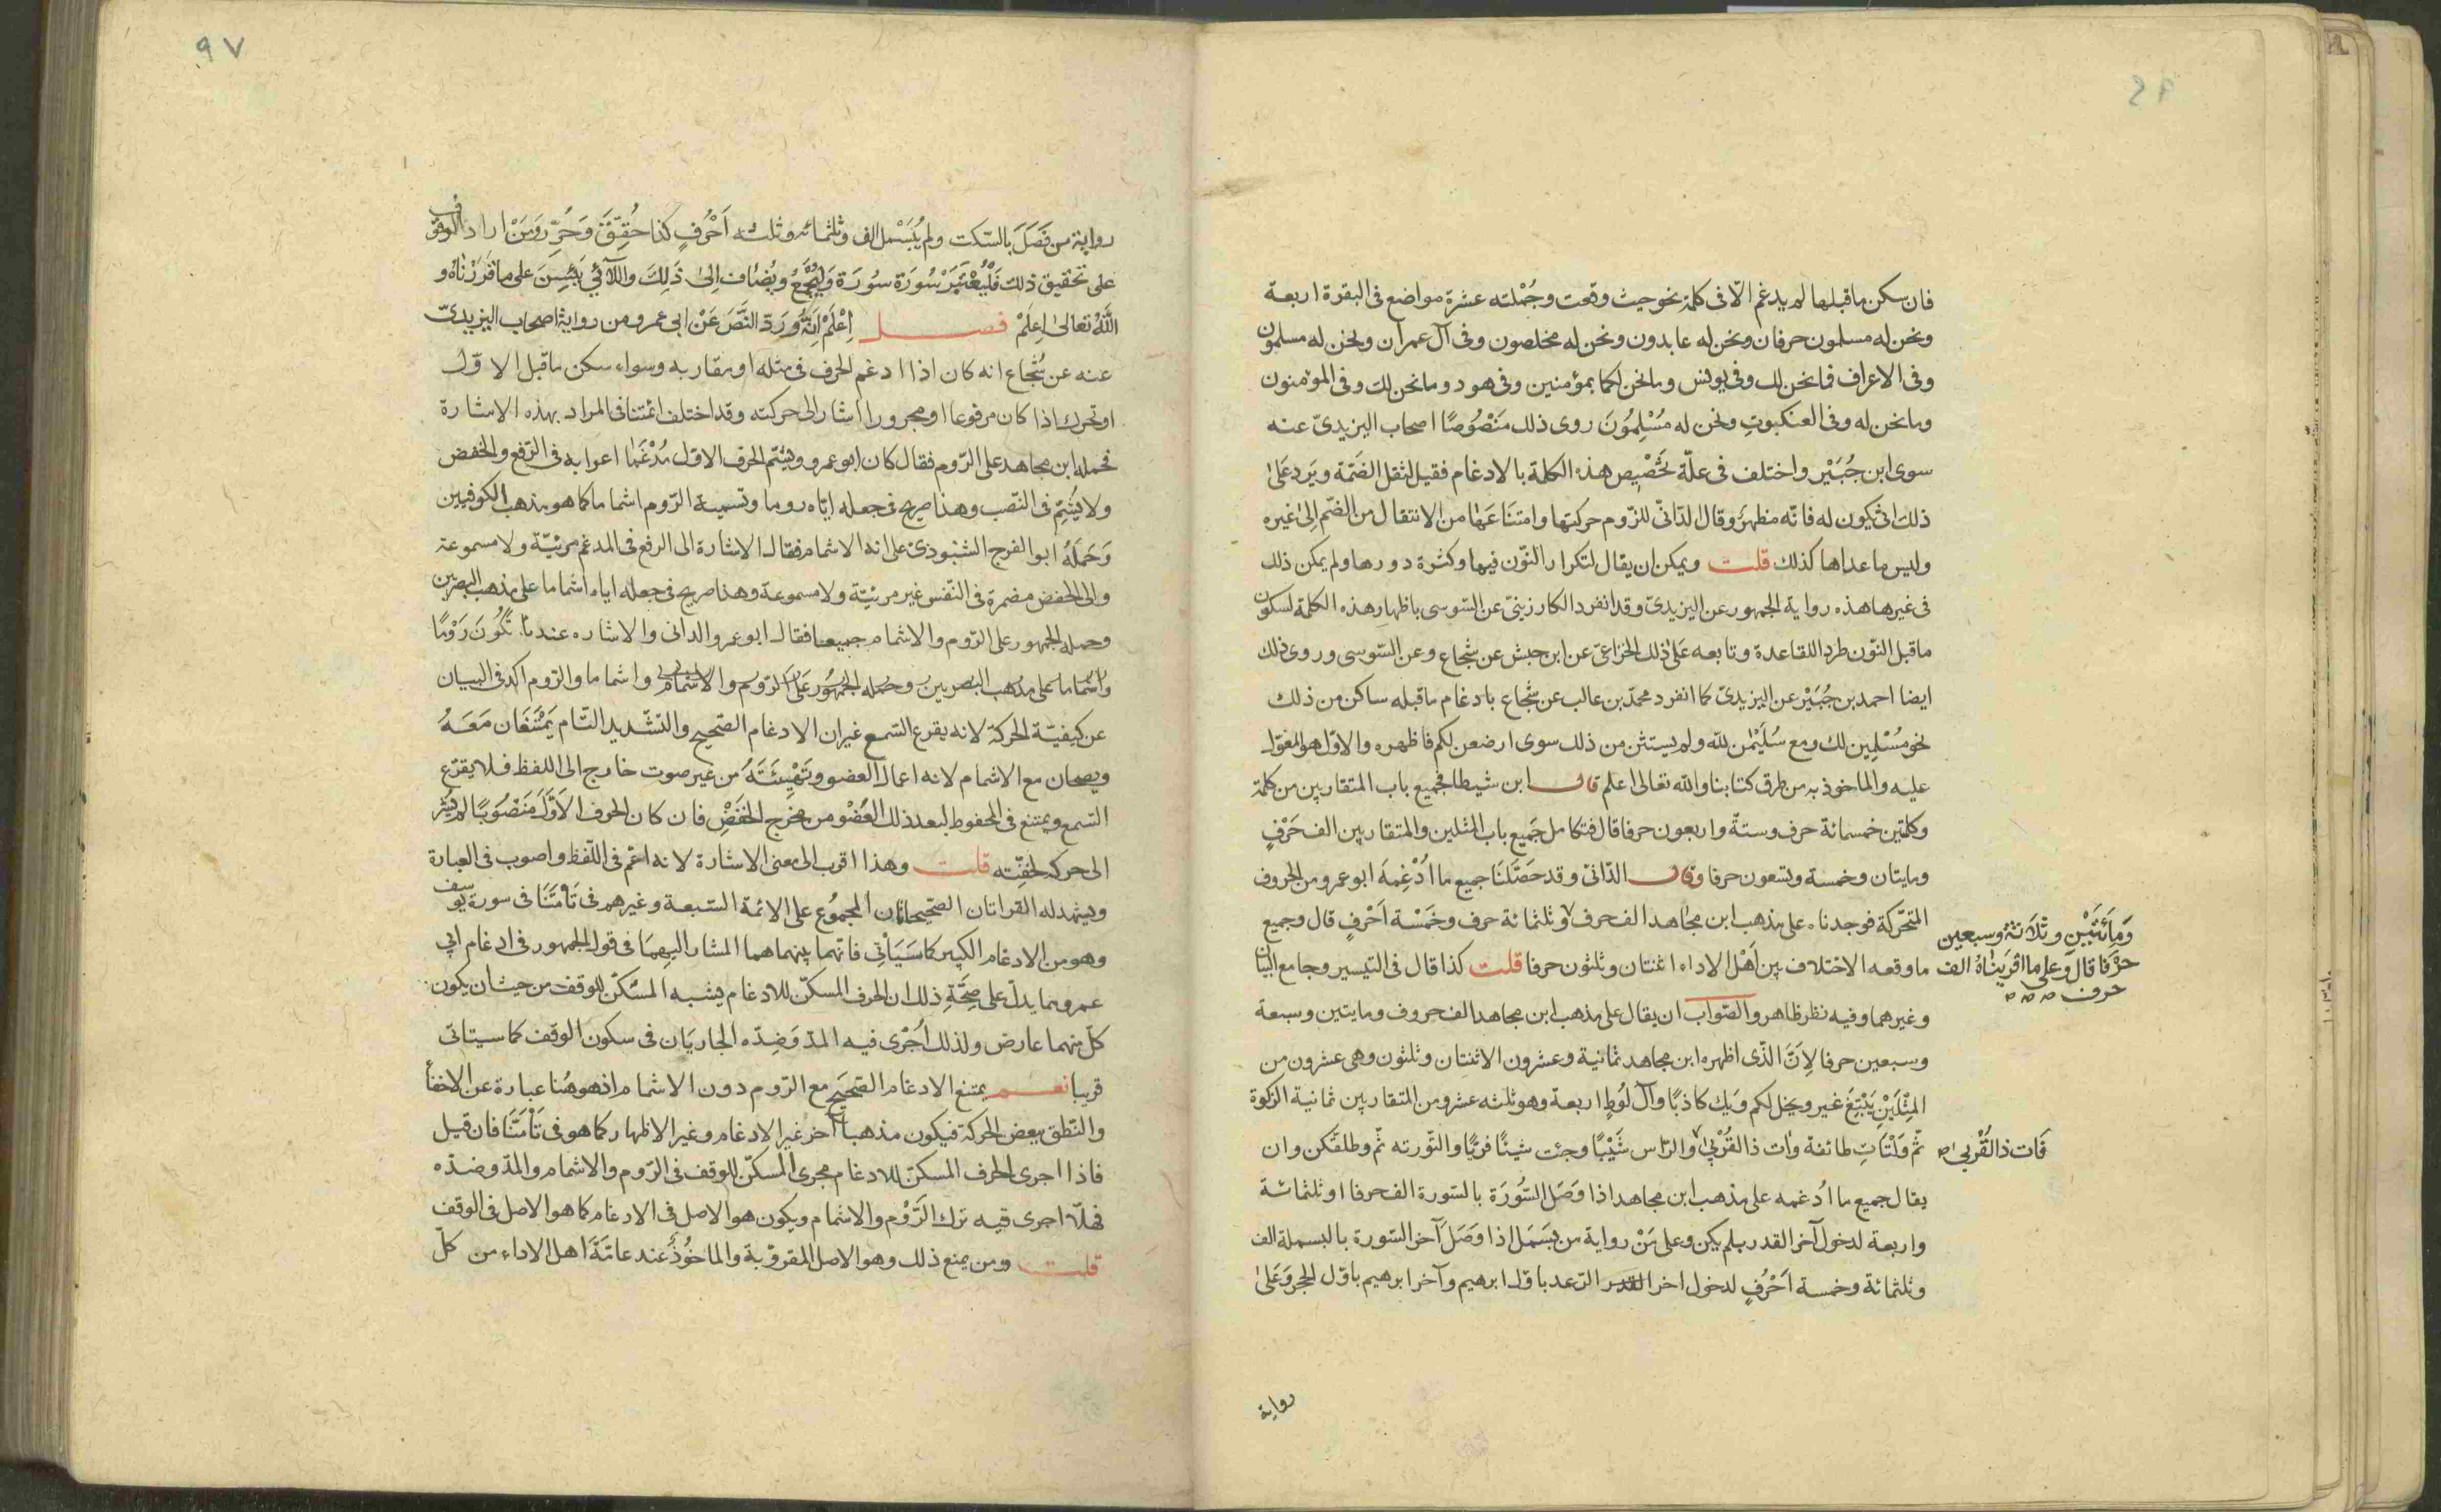 فان سكن ماقبلها لم يدغم الّا فى كلمة نحو حيث وقعت وجُمْلته عشرة مواضع فى البقرة اربعة
ونحن له مسلمون حرفان ونحن له عابدون ونحن له مخلصون وفى آل عمران ونحن له مسلمون
وفى الاعراف فما نحن لك وفى يونس وما نحن لكما بمؤمنين وفى هود وما نحن لك وفى المؤمنون
وما نحن له وفى العنكبوتِ ونحن له مُسْلِمُونَ روى ذلك مَنْصُوصًا اصحاب اليزيدىّ عنه
سوى ابن جُبَيْر واختلف فى علّة تَخْصْيِص هذه الكلمة بالادغام فقيل لثقل الضَمّة ويَرد عَلىٰ
ذلك انّى يكون له فانّه مظهر وقال الدّانىّ للزّوم حركتها وامتنَاعَهٰا من الانتقال من الضّم اِلىٰ غيره
وليس ماعداها كذلك قلت ويمكن ان يقال لتكرار النّون فيها وكثرة دورها ولم يمكن ذلك
فى غيرها هذه رواية الجمهور عن اليزيدىّ وقد انفرد الكارزينىّ عن السّوسى باظهار هذه الكلمة لسكون
ماقبل النّون طرد اللقاعدة وتابعه عَلىٰ ذلك الخزاعىّ عن ابن حبش عن شجاع وعن السّوسى وروى ذلك
ايضا احمد بن جُبَيْر عن اليزيدىّ كما انفرد محمّد بن غالب عن شجاع بادغام ماقبله ساكن من ذلك
نحو مُسْلِمِين لك ومع سُلَيْمٰن لله ولم يستثن من ذلك سوى ارضعن لكم فاظهره والاوّل هو المعوّل
عليه والماخوذ به من طرق كتابنا والله تعالى اعلم قال ابن شيطا فجميع باب المتقاربين من كلمة
وكلمتين خمسمائة حرف وستةّ واربعون حرفا قال فتكامل جَميع باب المثلين والمتقاربين الف حَرْفٍ
ومايتان وخمسة وتسعون حرفا وقال الدّانىّ وقد حَصّلْنَا جميع ما اُدْغِمهَ ابو عمرو من الحروف
المتحّركة فوجدناه على مذهب ابن مجاهد الف حرف وثلثمائة حرف وخَمْسْة اَحْرفٍ قال وجميع
ماوقعه الاختلاف بين اَهْل الاداء اثنتان وثلثون حرفا قلت كذا قال فى التيسير وجامع البيان
وغيرهما وفيه نظر ظاهر والصّواب ان يقال على مذهب ابن مجاهد الف حروف ومايتين وسبعة
وسبعين حرفا لِاَنَّ الذّى اظهره ابن مجاهد ثمانية وعشرون الاثنتان وثلثون وهى عشرون من
المِثْلَيْنِ يَبْتَغِ غير ويخل لكم وَيك كاذبًا وآل لُوطٍ اربعة وهو ثلثه عشر ومن المتقاربين ثمانية الزكوة
ثّم وَلْتَاتِ طائفة وٰات ذا القُرْبىٰ والرّاس شَيْبًا وجئت شيئًا فريًّا والتّورته ثّم وطلقكن وان
يقال جميع ما اُدغمه على مذهب ابن مجاهد اذا وَصَل السُّورَة بالسّورة الف حرفا وثلثمائة
واربعة لدخول آخر القدر بلم يكن وعلى مَنْ رواية من بسَمَل اذا وَصَلَ آخر السّورة بالبسملة الف
وثلثمائة وخمسة اَحْرُفٍ لدخول اخر القدر الرّعد باوّل ابرهيم وآخر ابرهيم باوّل الحجر وَعَلىٰ
وَمِأَئَتَيْنِ وثَلَاَثةٌ وسبعين
حرْفا قال وَعلى ما اقْرَيْنٰاهُ الف
حرف
فَات ذا القُرْبىٰ
رواية
٩٧
رواية من فَصَلَ بالسّكت ولم يُبَسْمل الف وثلثمائه وثلثه اَحْرُفٍ كذا حُقِّقَ وَحُرِّرَ وَمَنْ اراد الوقوف
على تحقيق ذلك فَلْيُعْتَبَرْ سُورَة سُورَة وَلْيُجْمَعُ ويُضٰاف اِلىٰ ذَلِكَ واللآئي يَئِسِنَ على ماقَرَرْنٰاهُ و
اللّهُ تعالىٰ اِعلَمْ فصل اِعْلَمْ اَنّهُ وَرَدَ النَّصَ عَنْ ابى عمرو من رواية اصحاب اليزيدىّ
عنه عن شُجٰاع انه كان اذا ادغم الحرف فى مثله او مقاربه وسواء سكن ماقبل الاوّل
او تحرك اذا كان مرفوعا او مجرورا اشار الى حركته وقد اختلف ائمّتنا فى المراد بهذه الاشارة
فحمله ابن مجاهد على الرّوم فقال كان ابو عمرو ويشّم الحرف الاوّل مُدْغَمًا اعرابه فى الرّفع والخفض
ولا يُشِّم فى النّصب وهذا صريح فى جعله ايّاه روما وتسمية الرّوم اشماما كما هو مذهب الكوفيين
وَحَمَلَهُ ابو الفرج الشنبوذىّ على انه الاشمام فقال الاشارة الى الرفع فى المدغم مرئيّة ولا مسموعة
والى الخفض مضمرة فى النّفس غير مرئيّة ولا مسموعة وهذا صريح فى جعله اياه اشماما على مذهب البصرين
وحمله الجمهور على الرّوم والاشمام جميعا فقال ابو عمرو الدانى والاشاره عندنا تَكُونَ رَوْمًا
واشماما على مذهب البصريين وحمله الجمهُور عَلىٰ الرّوم والاشمام واشماما والرّوم اكد فى البيان
عن كيفيّة الحركة لانه يقرع السّمع غير ان الادغام الصّحيح والتّشديد التّام يَمْتنعَان مَعَهُ
ويصحان مع الاشمام لانه اعمال العضو وتَهْيِئَتَهُ من غير صوت خارج الى اللفظ فلا يقرّع
السّمع ويمتنع فى المحفوط لبعد ذلك العُضْو من مخرج الخَفْضِ فان كان الحرف الاَوَّلَ مَنْصُوبًا لم يُشِر
الى حركه لخفِتّه قلت وهذا اقرب الى معنى الاشارة لانه اعّم فى اللّفظ واصوب فى العبارة
ويشهد له القراتان الصّحيحاتان المجموُع على الائمة السّبعة وغيرهم فى تَأمَنّاَ فى سورة يوسف
وهو من الادغام الكبير كما سَيَأْتِى فانّهما بينهما هما المشار اليهمَا فى قول الجمهور فى ادغام ابى
عمرو مما يدلّ على صِحَّةِ ذلك ان الحرف المسكّن للادغام يشبه المسّكن للوقف من حيث ان يكون
كلّ منهما عارض ولذلك اُجْرى فيه المدّ وَضِدّه الجاريَان فى سكون الوقف كما سيتاتى
قريبا نعم يمتنع الادغام الصّحَيحِ مع الرّوم دون الاشمام اذ هو هُنا عبارة عن الاخفأ
والنّطق ببعض الحركة فيكون مذهبا آخر غير الادغام وغير الاظهار كما هو فى تَأْمَنَّا فان قيل
فاذا اجرى الحرف المسكّن للادغام مجرى المسكّن للوقف فى الرّوم والاشمام والمدّ وضدّه
فهلّا اجرى فيه ترك الرّوَْم والاشمام ويكون هو الاصل فى الادغام كما هو الاصل فى الوقف
قلت ومن يمنع ذلك وهو الاصل المقروّ به والماخُوذُ عند عامّة اهل الاداء من كلّ